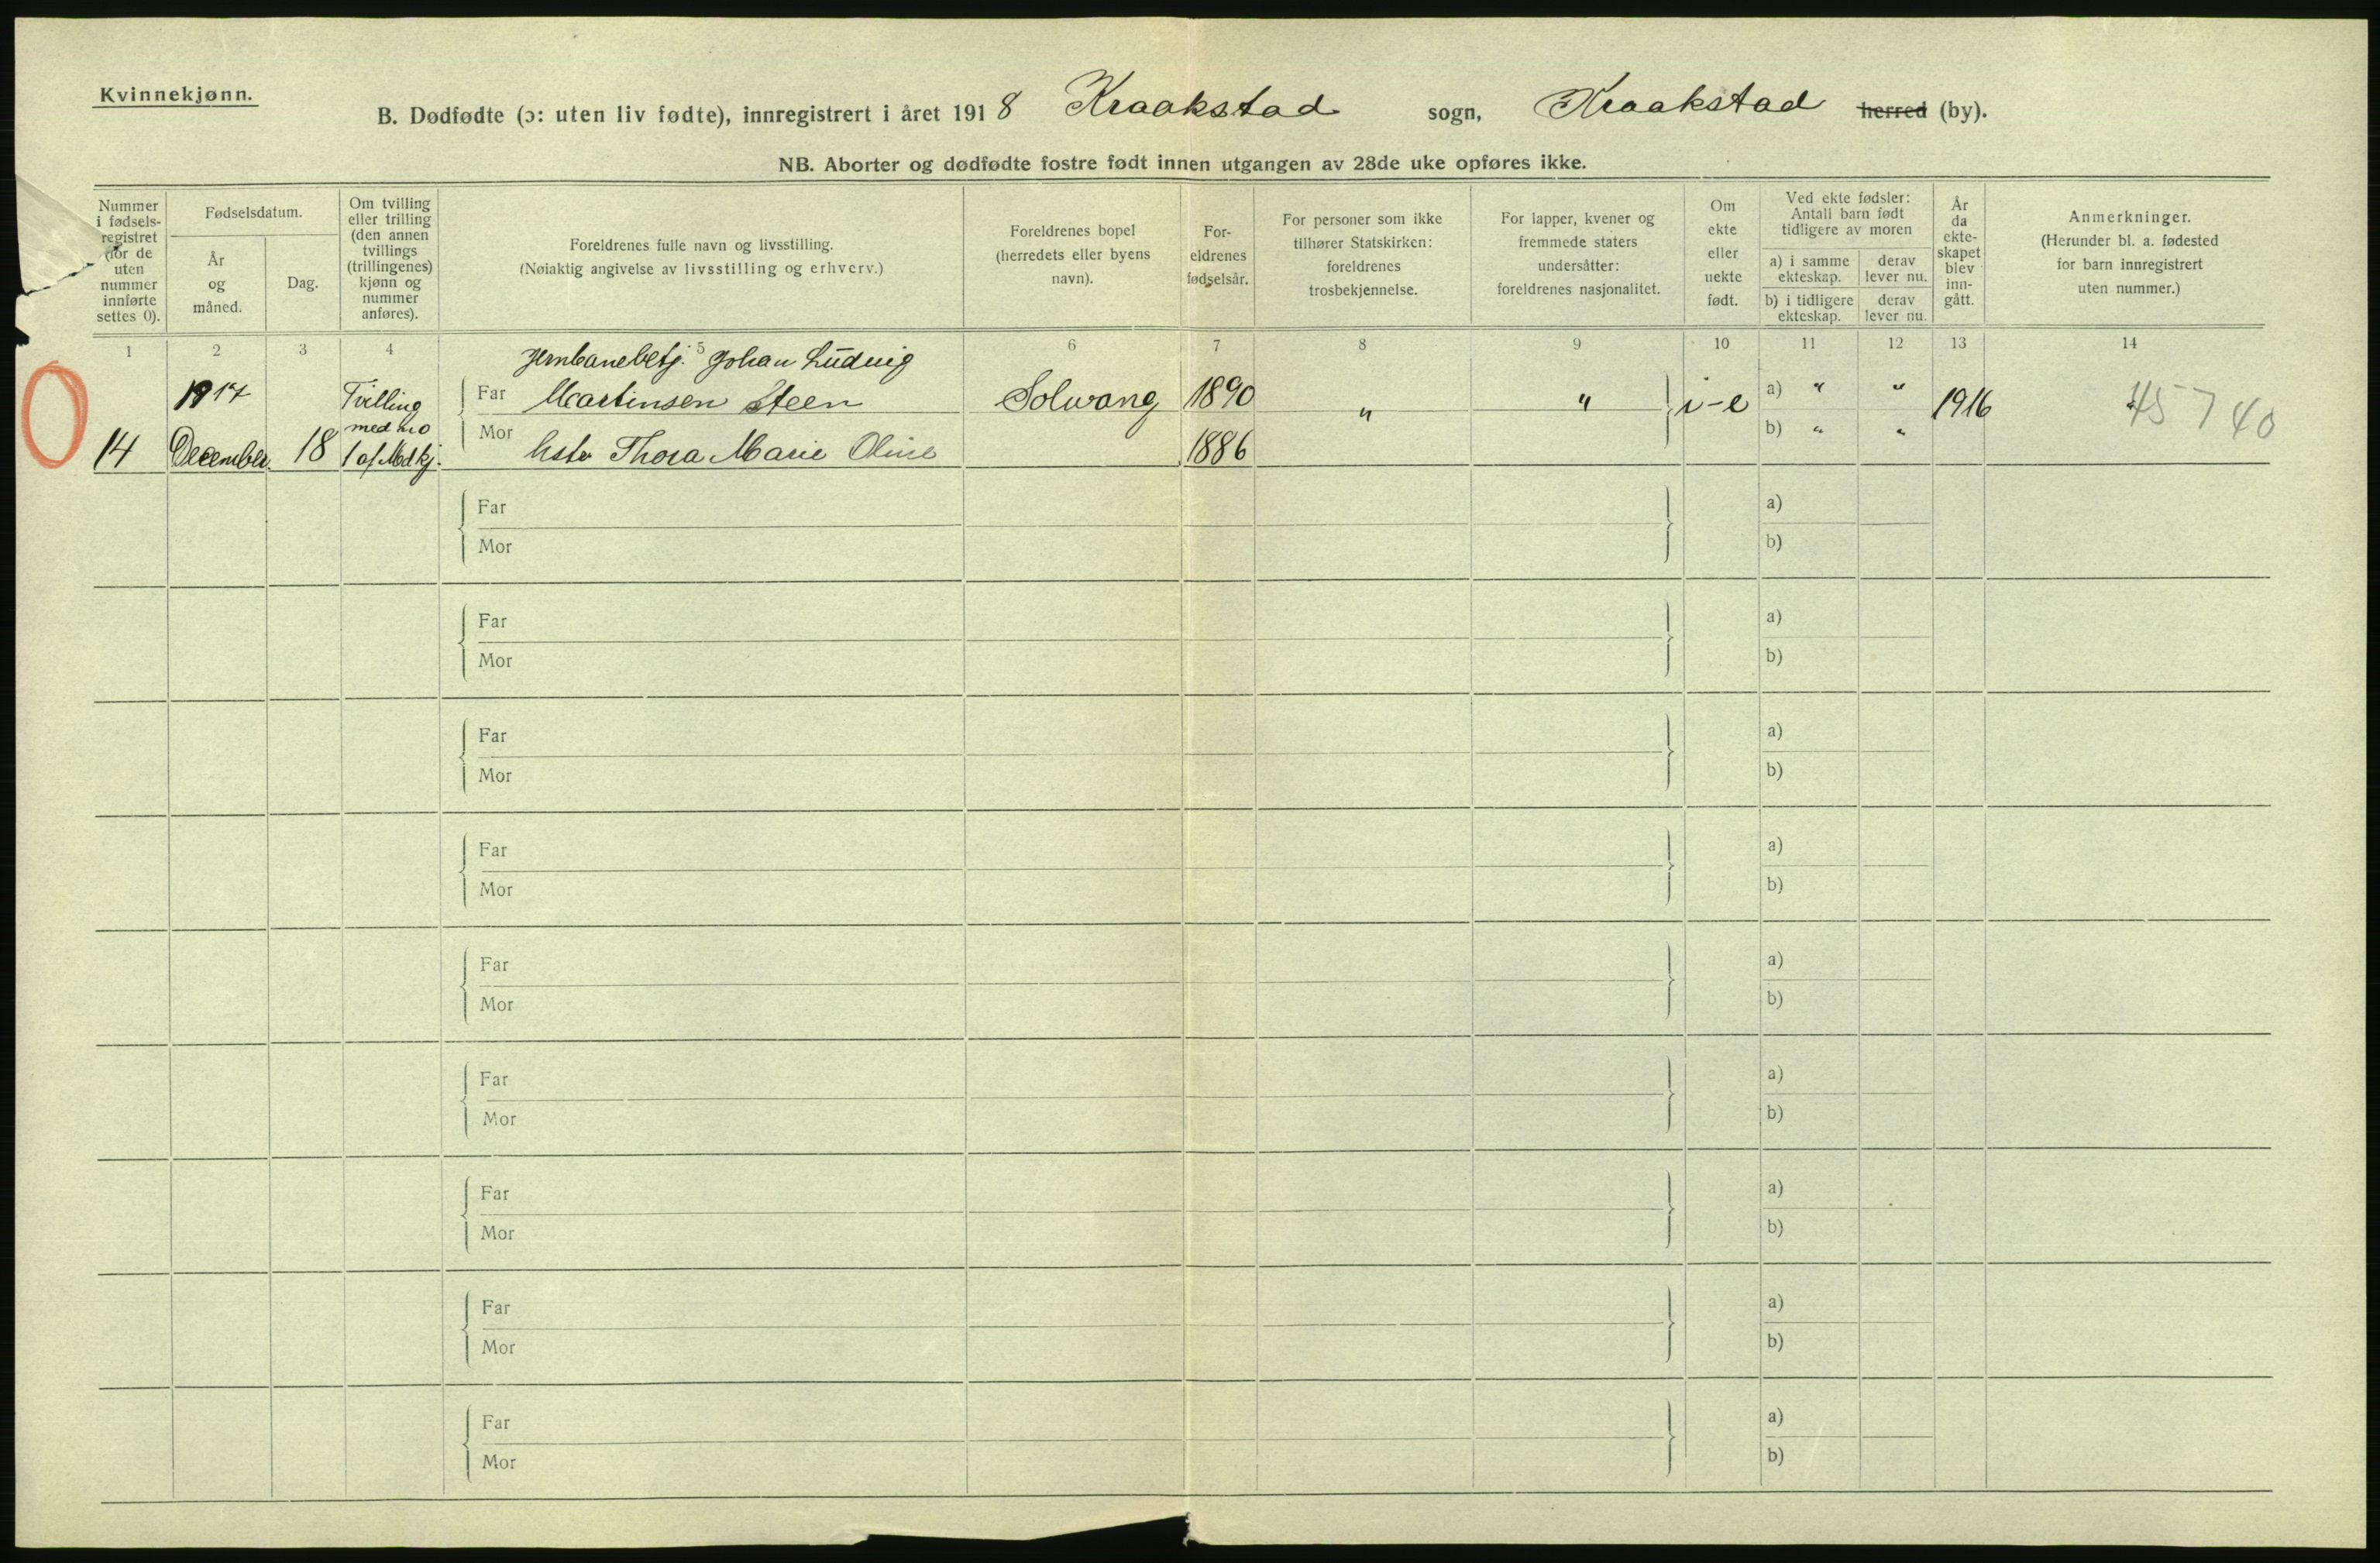 Kvinnekjønn.
B. Dødfødte (ɔ: uten liv fødte), innregistrert i året 1918 Kraakstad sogn, Kraakstad herred (by).
NB. Aborter og dødfødte fostre født innen utgangen av 28de uke opføres ikke.
Nummer
i fødsels-
registret
(for de
uten
nummer
innførte
settes 0).
Fødselsdatum.
År
og
måned.
Dag.
Om tvilling
eller trilling
(den annen
tvillings
(trillingenes)
kjønn og
nummer
anføres).
Foreldrenes fulle navn og livsstilling.
(Nøiaktig angivelse av livsstilling og erhverv.)
Foreldrenes bopel
(herredets eller byens
navn).
For-
eldrenes
fødselsår.
For personer som ikke
tilhører Statskirken:
foreldrenes
trosbekjennelse.
For lapper, kvener og
fremmede staters
undersåtter:
foreldrenes nasjonalitet.
Om
ekte
eller
uekte
født.
Ved ekte fødsler:
Antall barn født
tidligere av moren
a) i samme
ekteskap.
derav
lever nu.
b) i tidligere
ekteskap.
derav
lever nu.
År
da
ekte-
skapet
blev
inn-
gått.
Anmerkninger.
(Herunder bl. a. fødested
for barn innregistrert
uten nummer.)
1 2 3 4 5 6 7 8 9 10 11 12 13 14
Jernbanebetj. Johan Ludvig
1917 Tvilling Far Martinsen Steen Solvang 1890 " " i-e a) " " 1916 45740
med no Mor b) " "
14 December 18 1 af Mdkj. Hstr Thora Marie Oline 1886
Far a)
Mor b)
Far a)
Mor b)
Far a)
Mor b)
Far a)
Mor b)
Far a)
Mor b)
Far a)
Mor b)
Far a)
Mor b)
Far a)
Mor b)
Far a)
Mor b)